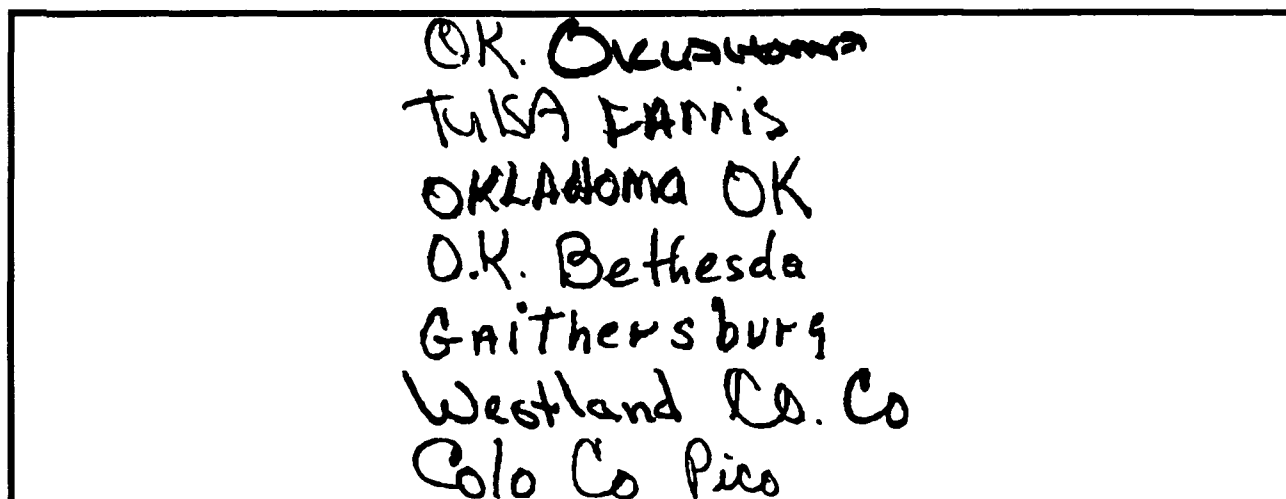 OK. OKLAHOMA
TulSA FArris
OKLAHOMA OK
O.K. Bethesda
GAiThersburg
Westland Co. Co
Colo Co Pico